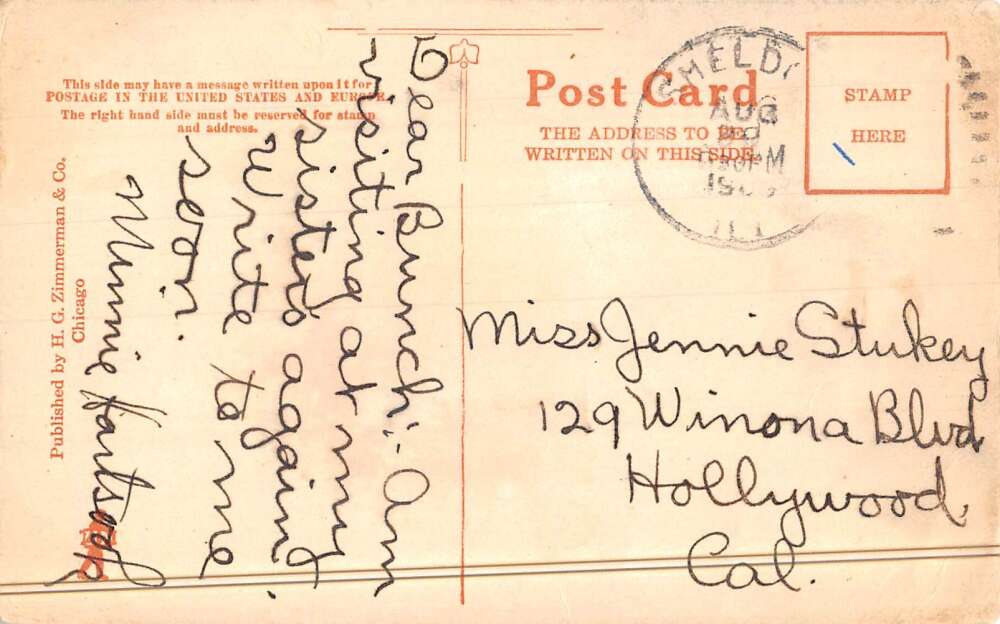 This side may have a message written upon it for
POSTAGE IN THE UNITED STATES AND EUROPE.
The right hand side must be reserved for stamp
and address.
Dear Bunch:- Am
visiting at my
sisters again
Write to me
soon.
Minnie
Published by H. G. Zimmerman & Co.
Chicago
Post Card
THE ADDRESS TO BE
WRITTEN ON THIS SIDE.
AUG
PM
STAMP
HERE
Miss Jennie Stukey
129 Winona Blvd
Hollywood,
Cal.